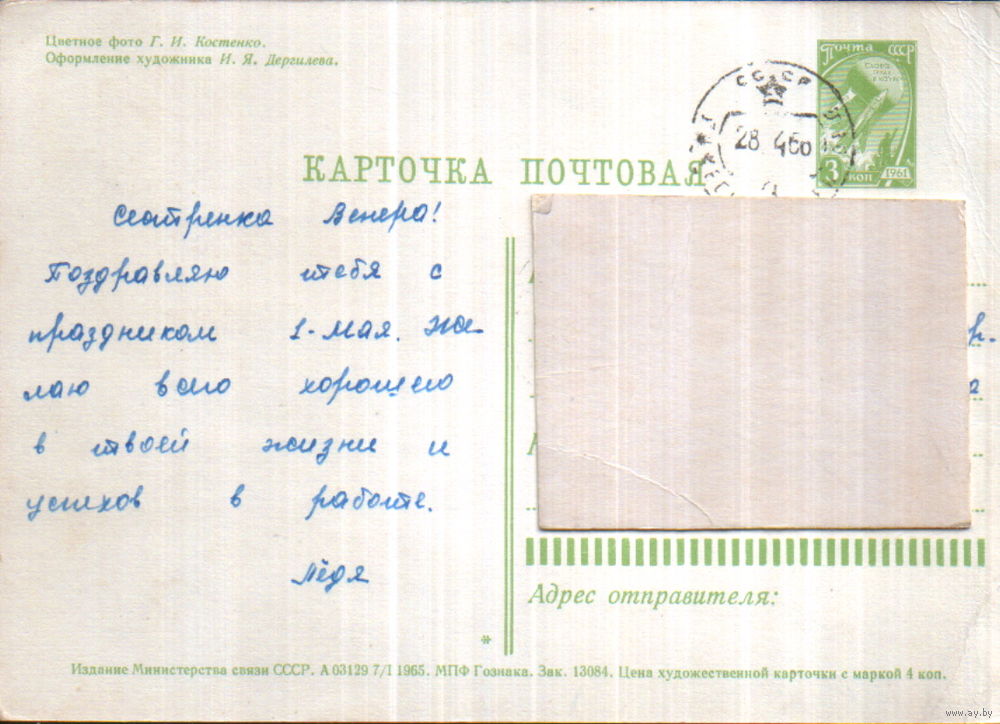 Цветное фото Г. И. Костенко.
Оформление художника И. Я. Дергилева.
Почта СССР
СССР
28 4 66
3 коп 1961
КАРТОЧКА ПОЧТОВАЯ
Сестренка Венера!
Поздравляю тебя с
праздником 1-Мая. Же-
лаю всего хорошего
в твоей жизни и
успехов в работе.
Лёдя
р.
а
Адрес отправителя:
*
Издание Министерства связи СССР. А 03129 7/I 1965. МПФ Гознака. Зак. 13084. Цена художественной карточки с маркой 4 коп.
www.ay.by